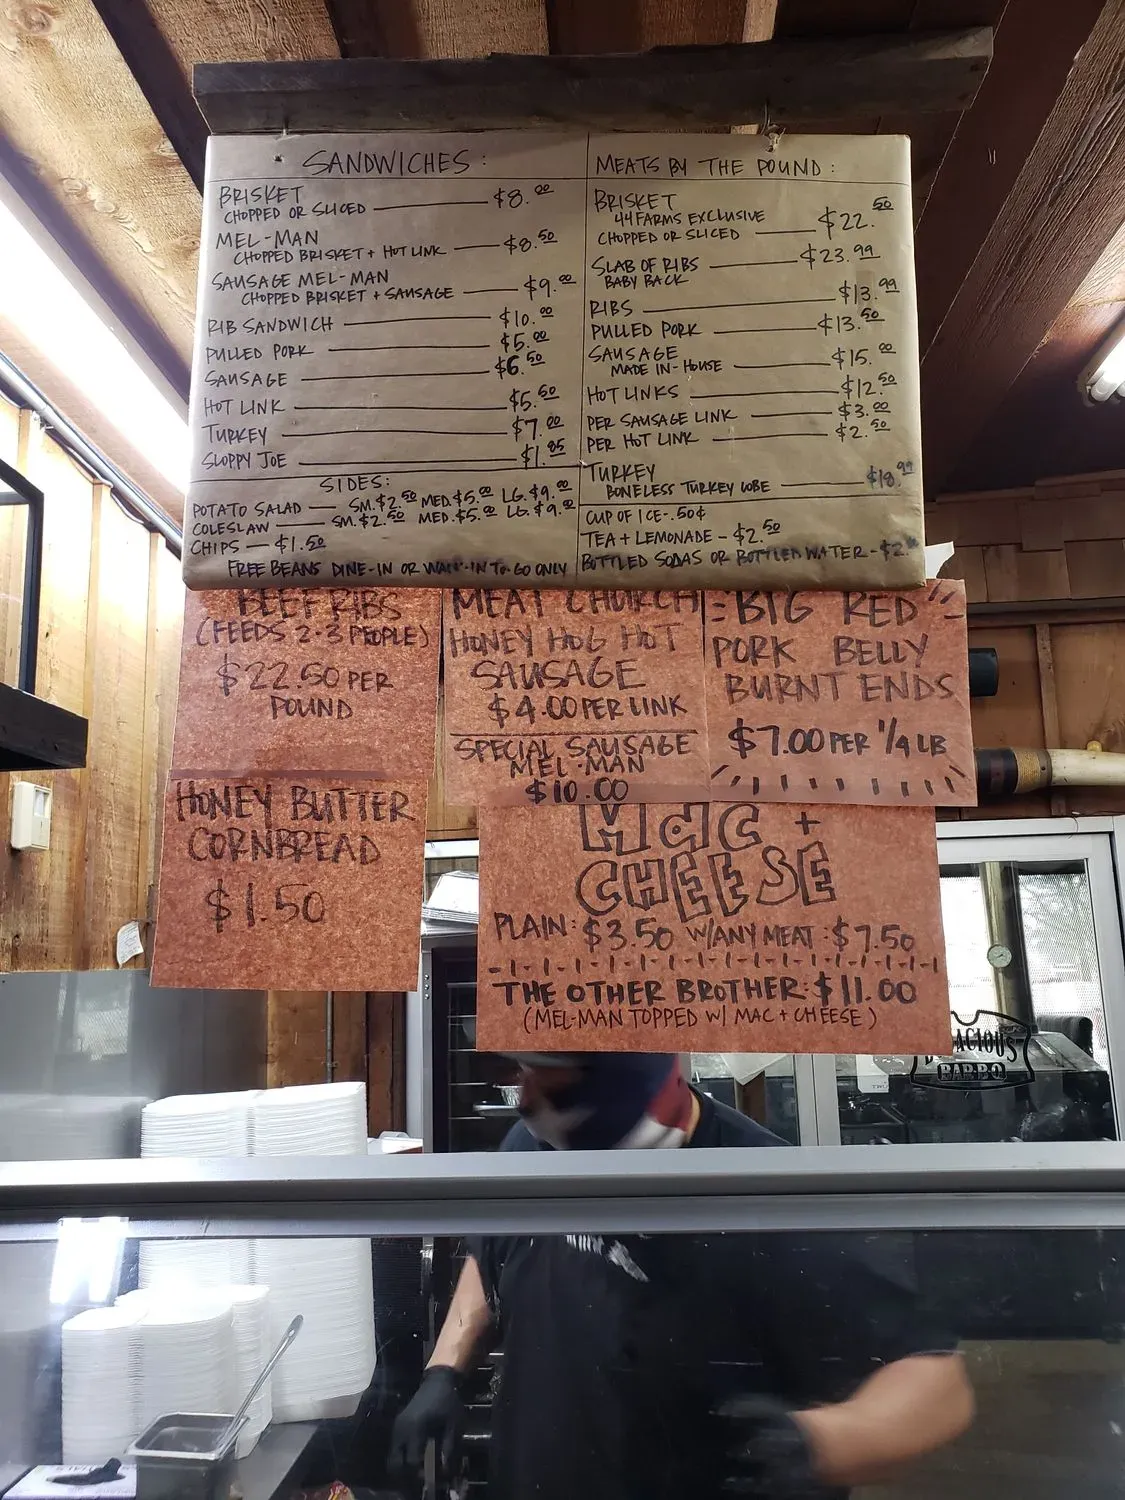 SANDWICHES:
BRISKET
CHOPPED OR SLICED $8.00
MEL-MAN
CHOPPED BRISKET + HOT LINK $8.50
SAUSAGE MEL-MAN
CHOPPED BRISKET + SAUSAGE $9.00
RIB SANDWICH $10.00
PULLED PORK $5.00
SAUSAGE $6.50
HOT LINK $5.50
TURKEY $7.00
SLOPPY JOE $1.85
SIDES:
POTATO SALAD SM. $2.50 MED. $5.00 LG. $9.00
COLESLAW SM. $2.50 MED. $5.00 LG. $9.00
CHIPS — $1.50
FREE BEANS DINE-IN OR WALK-IN TO-GO ONLY
MEATS BY THE POUND:
BRISKET
44 FARMS EXCLUSIVE
CHOPPED OR SLICED $22.50
SLAB OF RIBS $23.99
BABY BACK
RIBS $13.99
PULLED PORK $13.50
SAUSAGE
MADE IN-HOUSE $15.00
HOT LINKS $12.50
PER SAUSAGE LINK $3.00
PER HOT LINK $2.50
TURKEY
BONELESS TURKEY LOBE $18.99
CUP OF ICE - .50¢
TEA + LEMONADE - $2.50
BOTTLED SODAS OR BOTTLED WATER - $2.
BEEF RIBS
(FEEDS 2-3 PEOPLE)
$22.50 PER
POUND
HONEY BUTTER
CORNBREAD
$1.50
MEAT CHURCH
HONEY HOG HOT
SAUSAGE
$4.00 PER LINK
SPECIAL SAUSAGE
MEL-MAN
$10.00
BIG RED
PORK BELLY
BURNT ENDS
$7.00 PER 1/4 LB
MAC +
CHEESE
PLAIN: $3.50 W/ANY MEAT: $7.50
THE OTHER BROTHER: $11.00
(MEL-MAN TOPPED W/ MAC + CHEESE)
BAR BQ